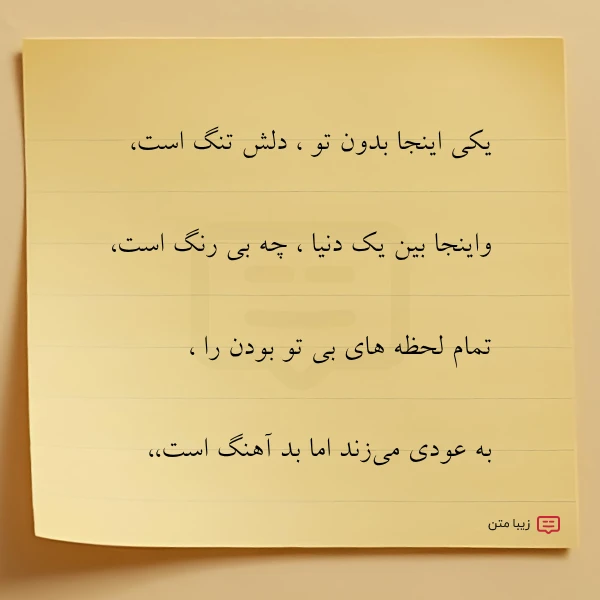 یکی اینجا بدون تو ، دلش تنگ است،
واینجا بین یک دنیا ، چه بی رنگ است،
تمام لحظه های بی تو بودن را ،
به عودی می‌زند اما بد آهنگ است،،
زیبا متن